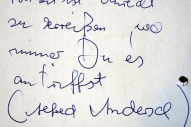 zu zerreißen, wo
immer Du es
antriffst
(Alfred Andersch)